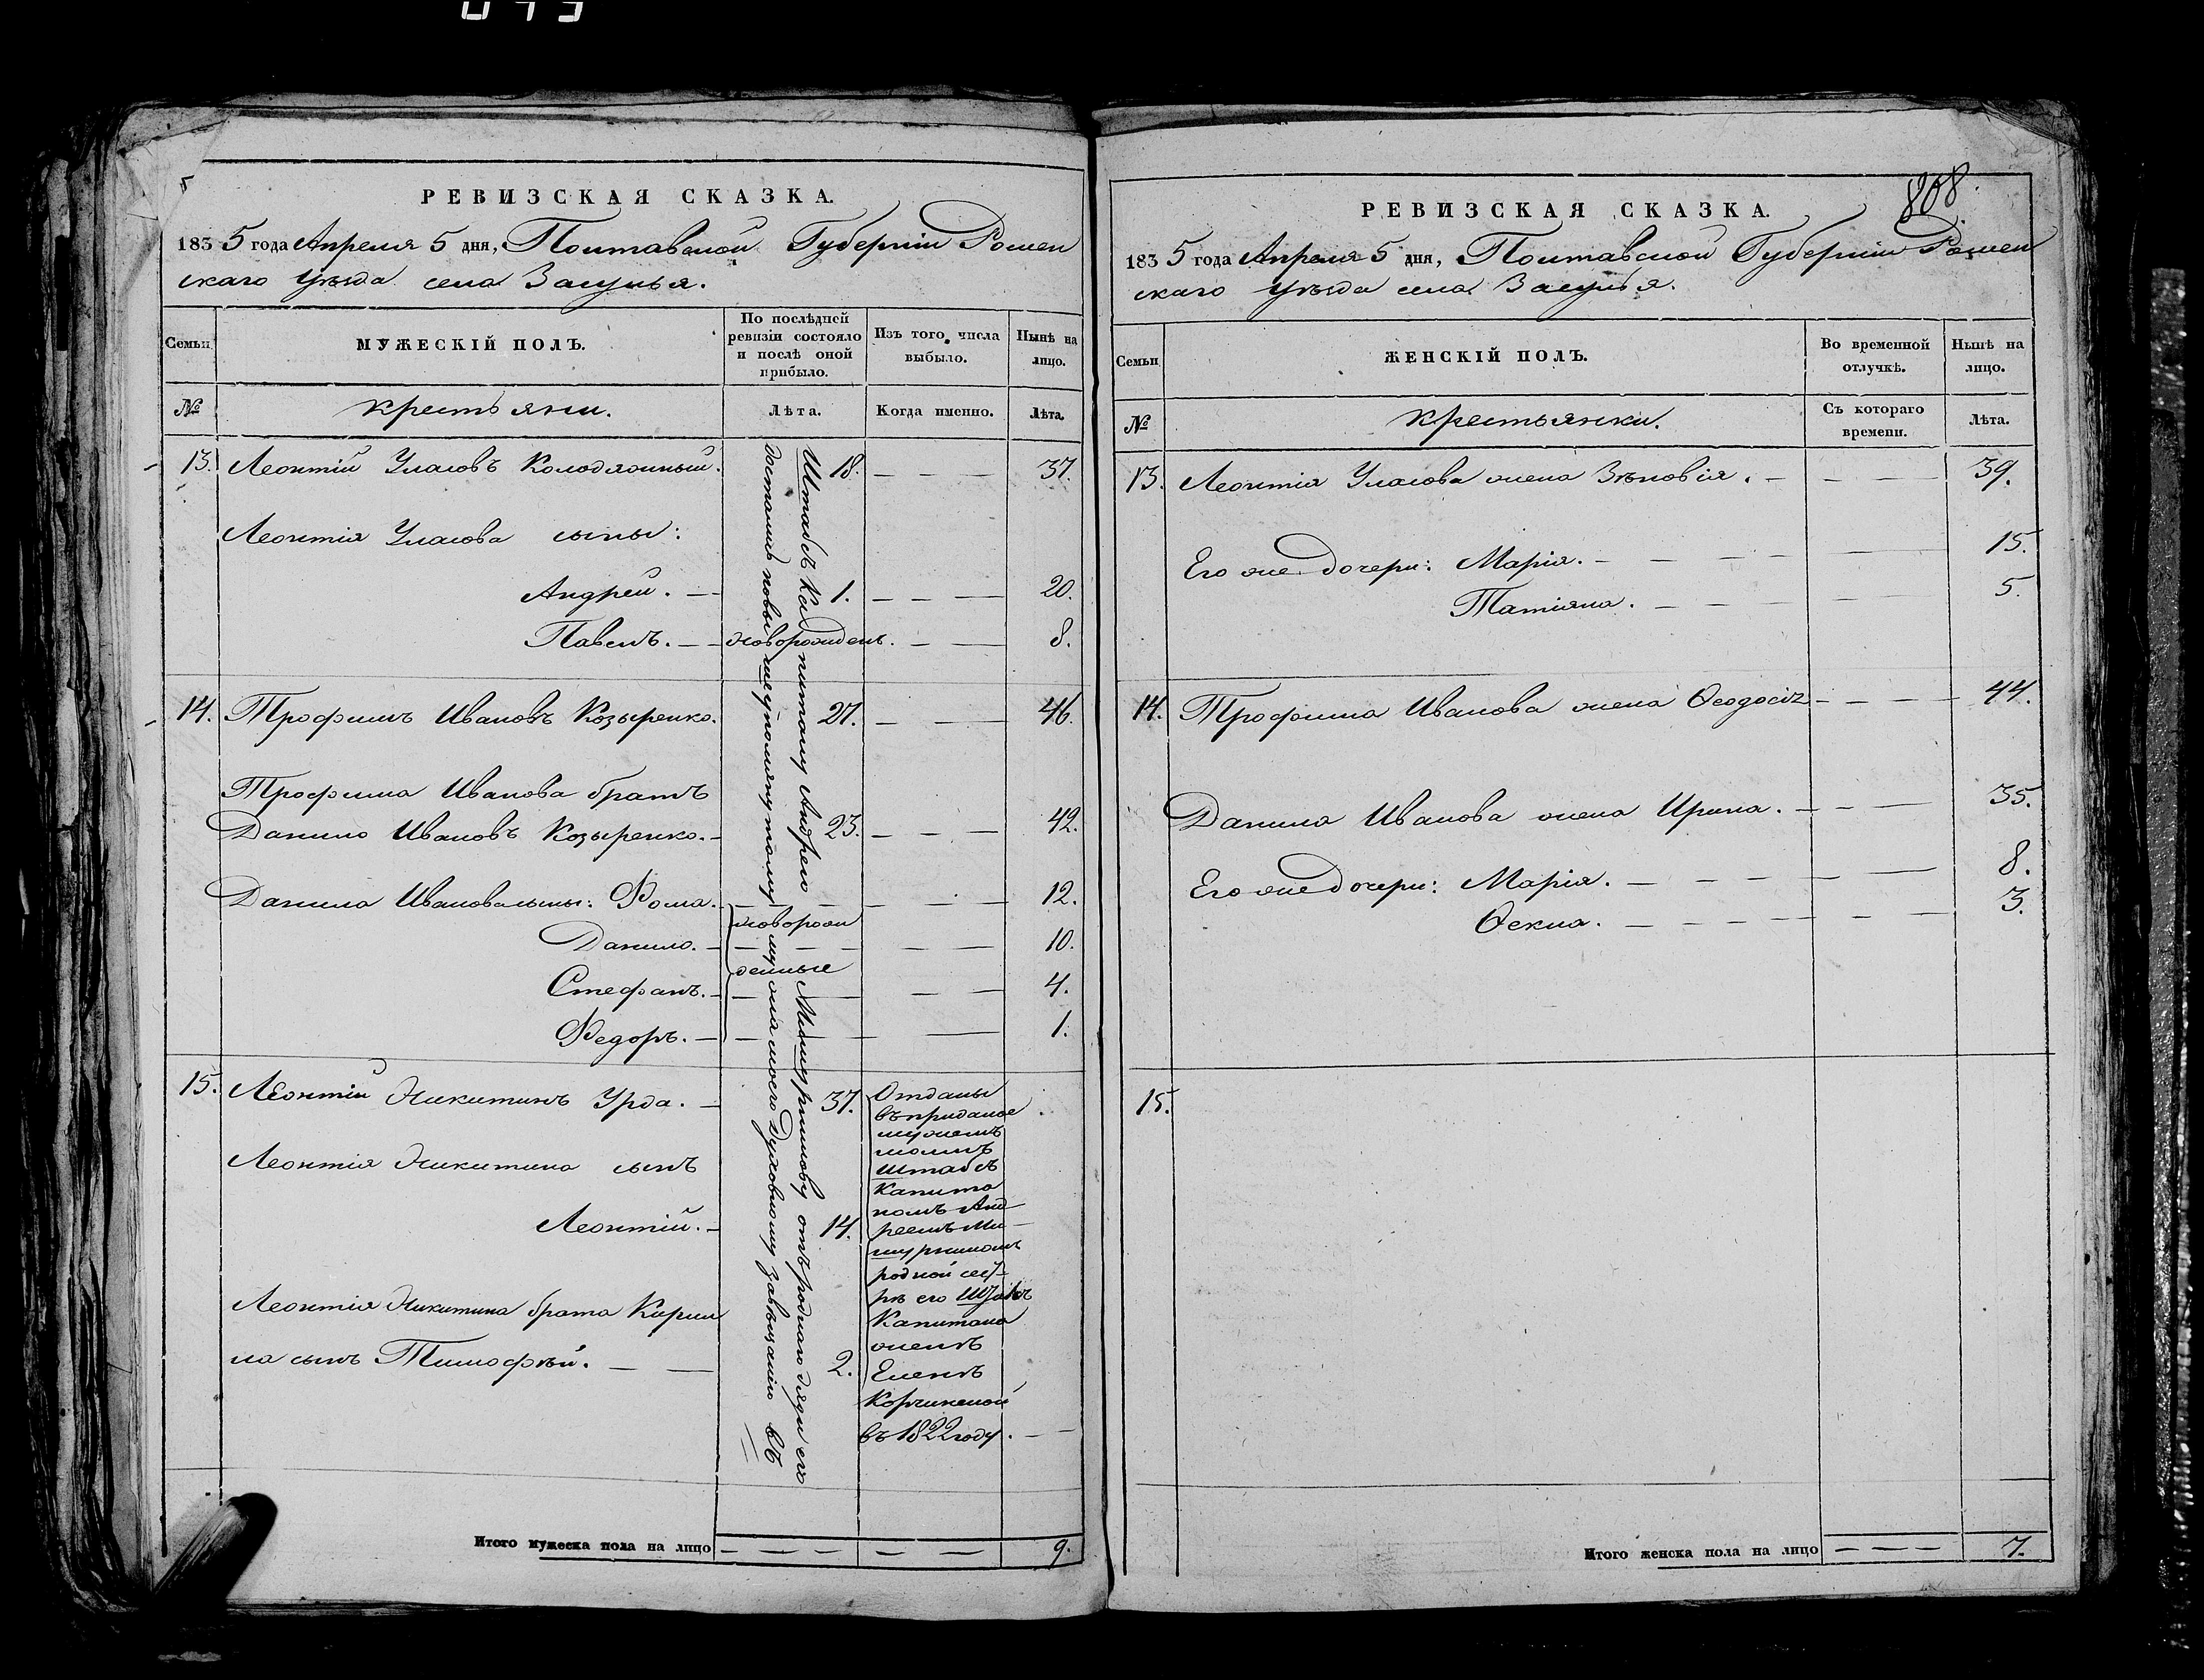 РЕВИЗСКАЯ СКАЗКА.
1835 года Апреля 5 дня, Полтавской Губерніи Ромен
скаго уѣзда села Засулья.
Семьи
МУЖЕСКІЙ ПОЛЪ.
По послѣдней
ревизіи состояло
и послѣ оной
прибыло.
Изъ того числа
выбыло.
Нынѣ на
лицо.
№
крестьяни.
Лѣта.
Когда именно.
Лѣта.
13. Леонтій Уласовъ Колодяжный. 18. — — — 37.
Леонтія Уласова сыны:
Андрей. — 1. — — — 20.
Павелъ. — — новорожденъ. — — 8.
14. Трофимъ Ивановъ Козыренко. 27. — — — 46.
Трофима Иванова братъ
Данило Ивановъ Козыренко. — 23. — — — 42.
Данила Иванова сыны: Фома. — — — — 12.
новорож
Данило. — — — — — 10.
денные
Стефанъ. — — — — — 4.
Федоръ. — — — — 1.
15. Леонтій Никитинъ Урда. — 37.
Леонтія Никитина сынъ
Леонтій. — 14.
Леонтія Никитина брата Кирил
ла сынъ Тимофѣй. — — 2.
Отданы
въ приданое
мужемъ
моимъ
Штабсъ
Капита
номъ Анд
реемъ Ми
шуринымъ
родной сест
рѣ его Штабсъ
Капитана
женѣ
Еленѣ
въ 1822 году. — —
Штабсъ Капитану Андрею Мишуринову отъ роднаго дяди его
достались новы шеупомянутому мужу моего Духовному завѣщанію въ
Итого мужеска пола на лицо — — — — — 9.
808.
РЕВИЗСКАЯ СКАЗКА.
1835 года Апреля 5 дня, Полтавской Губерніи Ромен
скаго уѣзда села Засулья.
Семьи
ЖЕНСКІЙ ПОЛЪ.
Во временной
отлучкѣ.
Нынѣ на
лицо.
№
крестьянки.
Съ котораго
времени.
Лѣта.
13. Леонтія Уласова жена Зѣновія. — — — 39.
Его же дочери: Марія. — — — — 15.
Татіяна. — — — — 5.
14. Трофима Иванова жена Ѳеодосія — — — — 44.
Данила Иванова жена Ирина. — — — 35.
Его же дочери: Марія. — — — — 8.
Ѳекла. — — — — — 3.
15.
Итого женска пола на лицо — — — 7.